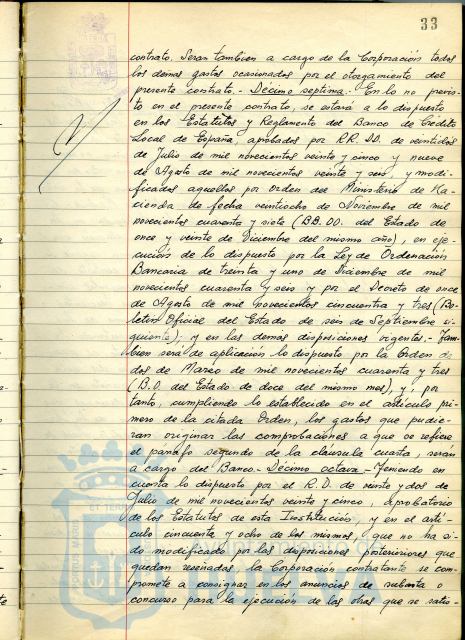 33
contrato. Seran tambien a cargo de la Corporación todos
los demas gastos ocasionados por el otorgamiento del
presente contrato.- Décimo septima.- En lo no previs-
to en el presente contrato, se estará a lo dispuesto
en los Estatutos y Reglamento del Banco de Crédito
Local de España, aprobados por RR. DD. de veintidos
de Julio de mil novecientos veinte y cinco y nueve
de Agosto de mil novecientos veinte y seis, y modi-
ficados aquellos por orden del Ministerio de Ha-
cienda de fecha veintiocho de Noviembre de mil
novecientos cuarenta y siete (BB.OO. del Estado de
once y veinte de Diciembre del mismo año), en eje-
cución de lo dispuesto por la Ley de Ordenación
Bancaria de treinta y uno de Diciembre de mil
novecientos cuarenta y seis y por el Decreto de once
de Agosto de mil novecientos cincuenta y tres (Bo-
letin Oficial del Estado de seis de Septiembre si-
guiente); y en las demás disposiciones vigentes.- Tam-
bien será de aplicación lo dispuesto por la Orden de
dos de Marzo de mil novecientos cuarenta y tres
(B.O. del Estado de doce del mismo mes), y, por
tanto, cumpliendo lo establecido en el artículo pri-
mero de la citada Orden, los gastos que pudie-
ran originar las comprobaciones a que se refiere
el parrafo segundo de la cláusula cuarta, serán
a cargo del Banco.- Décimo octava.- Teniendo en
cuenta lo dispuesto por el R.D. de veinte y dos de
Julio de mil novecientos veinte y cinco, aprobatorio
de los Estatutos de esta Institución, y en el artí-
culo cincuenta y ocho de los mismos, que no ha si-
do modificado por las disposiciones posteriores que
quedan reseñadas, la Corporación contratante se com-
promete a consignar en los anuncios de subasta o
concurso para la ejecución de las obras que se satis-